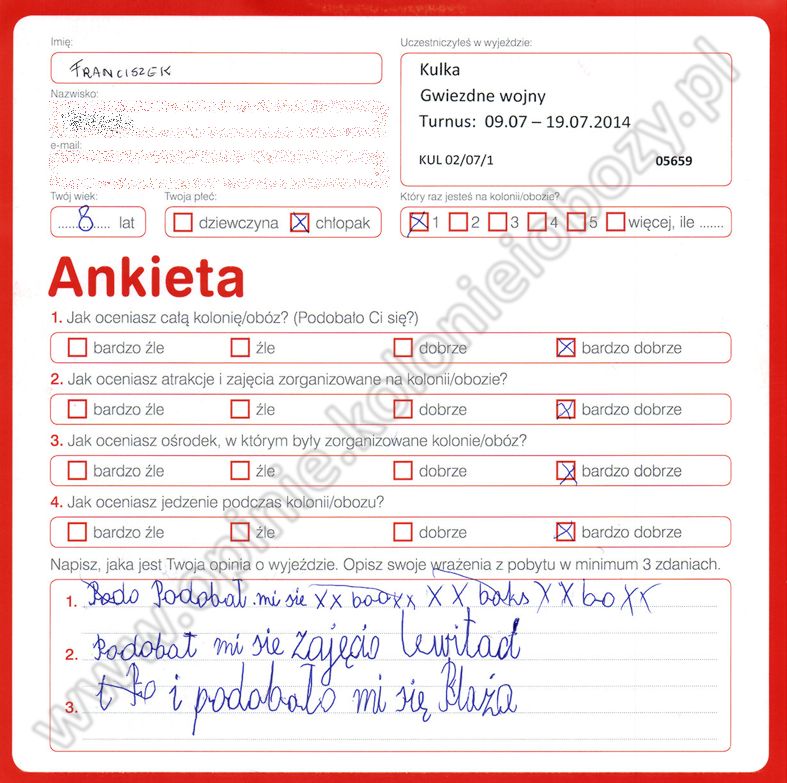 Imię:
Uczestniczyłeś w wyjeździe:
FRANCISZEK
Kulka
Gwiezdne wojny
Turnus: 09.07 – 19.07.2014
KUL 02/07/1 05659
Nazwisko:
e-mail:
Twój wiek: Twoja płeć: Który raz jesteś na kolonii/obozie?
8 lat dziewczyna chłopak 1 2 3 4 5 więcej, ile .......
Ankieta
1. Jak oceniasz całą kolonię/obóz? (Podobało Ci się?)
bardzo źle źle dobrze bardzo dobrze
2. Jak oceniasz atrakcje i zajęcia zorganizowane na kolonii/obozie?
bardzo źle źle dobrze bardzo dobrze
3. Jak oceniasz ośrodek, w którym były zorganizowane kolonie/obóz?
bardzo źle źle dobrze bardzo dobrze
4. Jak oceniasz jedzenie podczas kolonii/obozu?
bardzo źle źle dobrze bardzo dobrze
Napisz, jaka jest Twoja opinia o wyjeździe. Opisz swoje wrażenia z pobytu w minimum 3 zdaniach.
1. Podobał mi sie boks
2. Podobat mi sie zajęcio
3. i podobało mi się Plaża
www.opinie.kolonieiobozy.pl